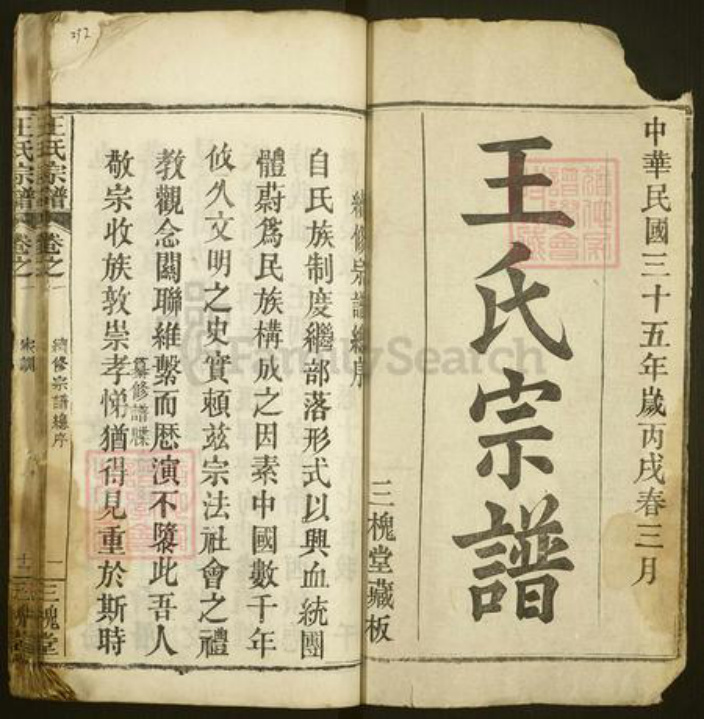 中華民國三十五年歲丙戌春三月
王氏宗譜
三槐堂藏板
續修宗譜總序
自氏族制度繼部落形式以興血統團
體蔚爲民族構成之因素中國數千年
攸久文明之史實賴茲宗法社會之禮
教觀念關聯維繫而歷演不墜此吾人
纂修譜牒
敬宗收族敦崇孝悌猶得見重於斯時
王氏宗譜
卷之一
續修宗譜總序
一
三槐堂
王氏宗譜
卷之一
家訓
FamilySearch
292